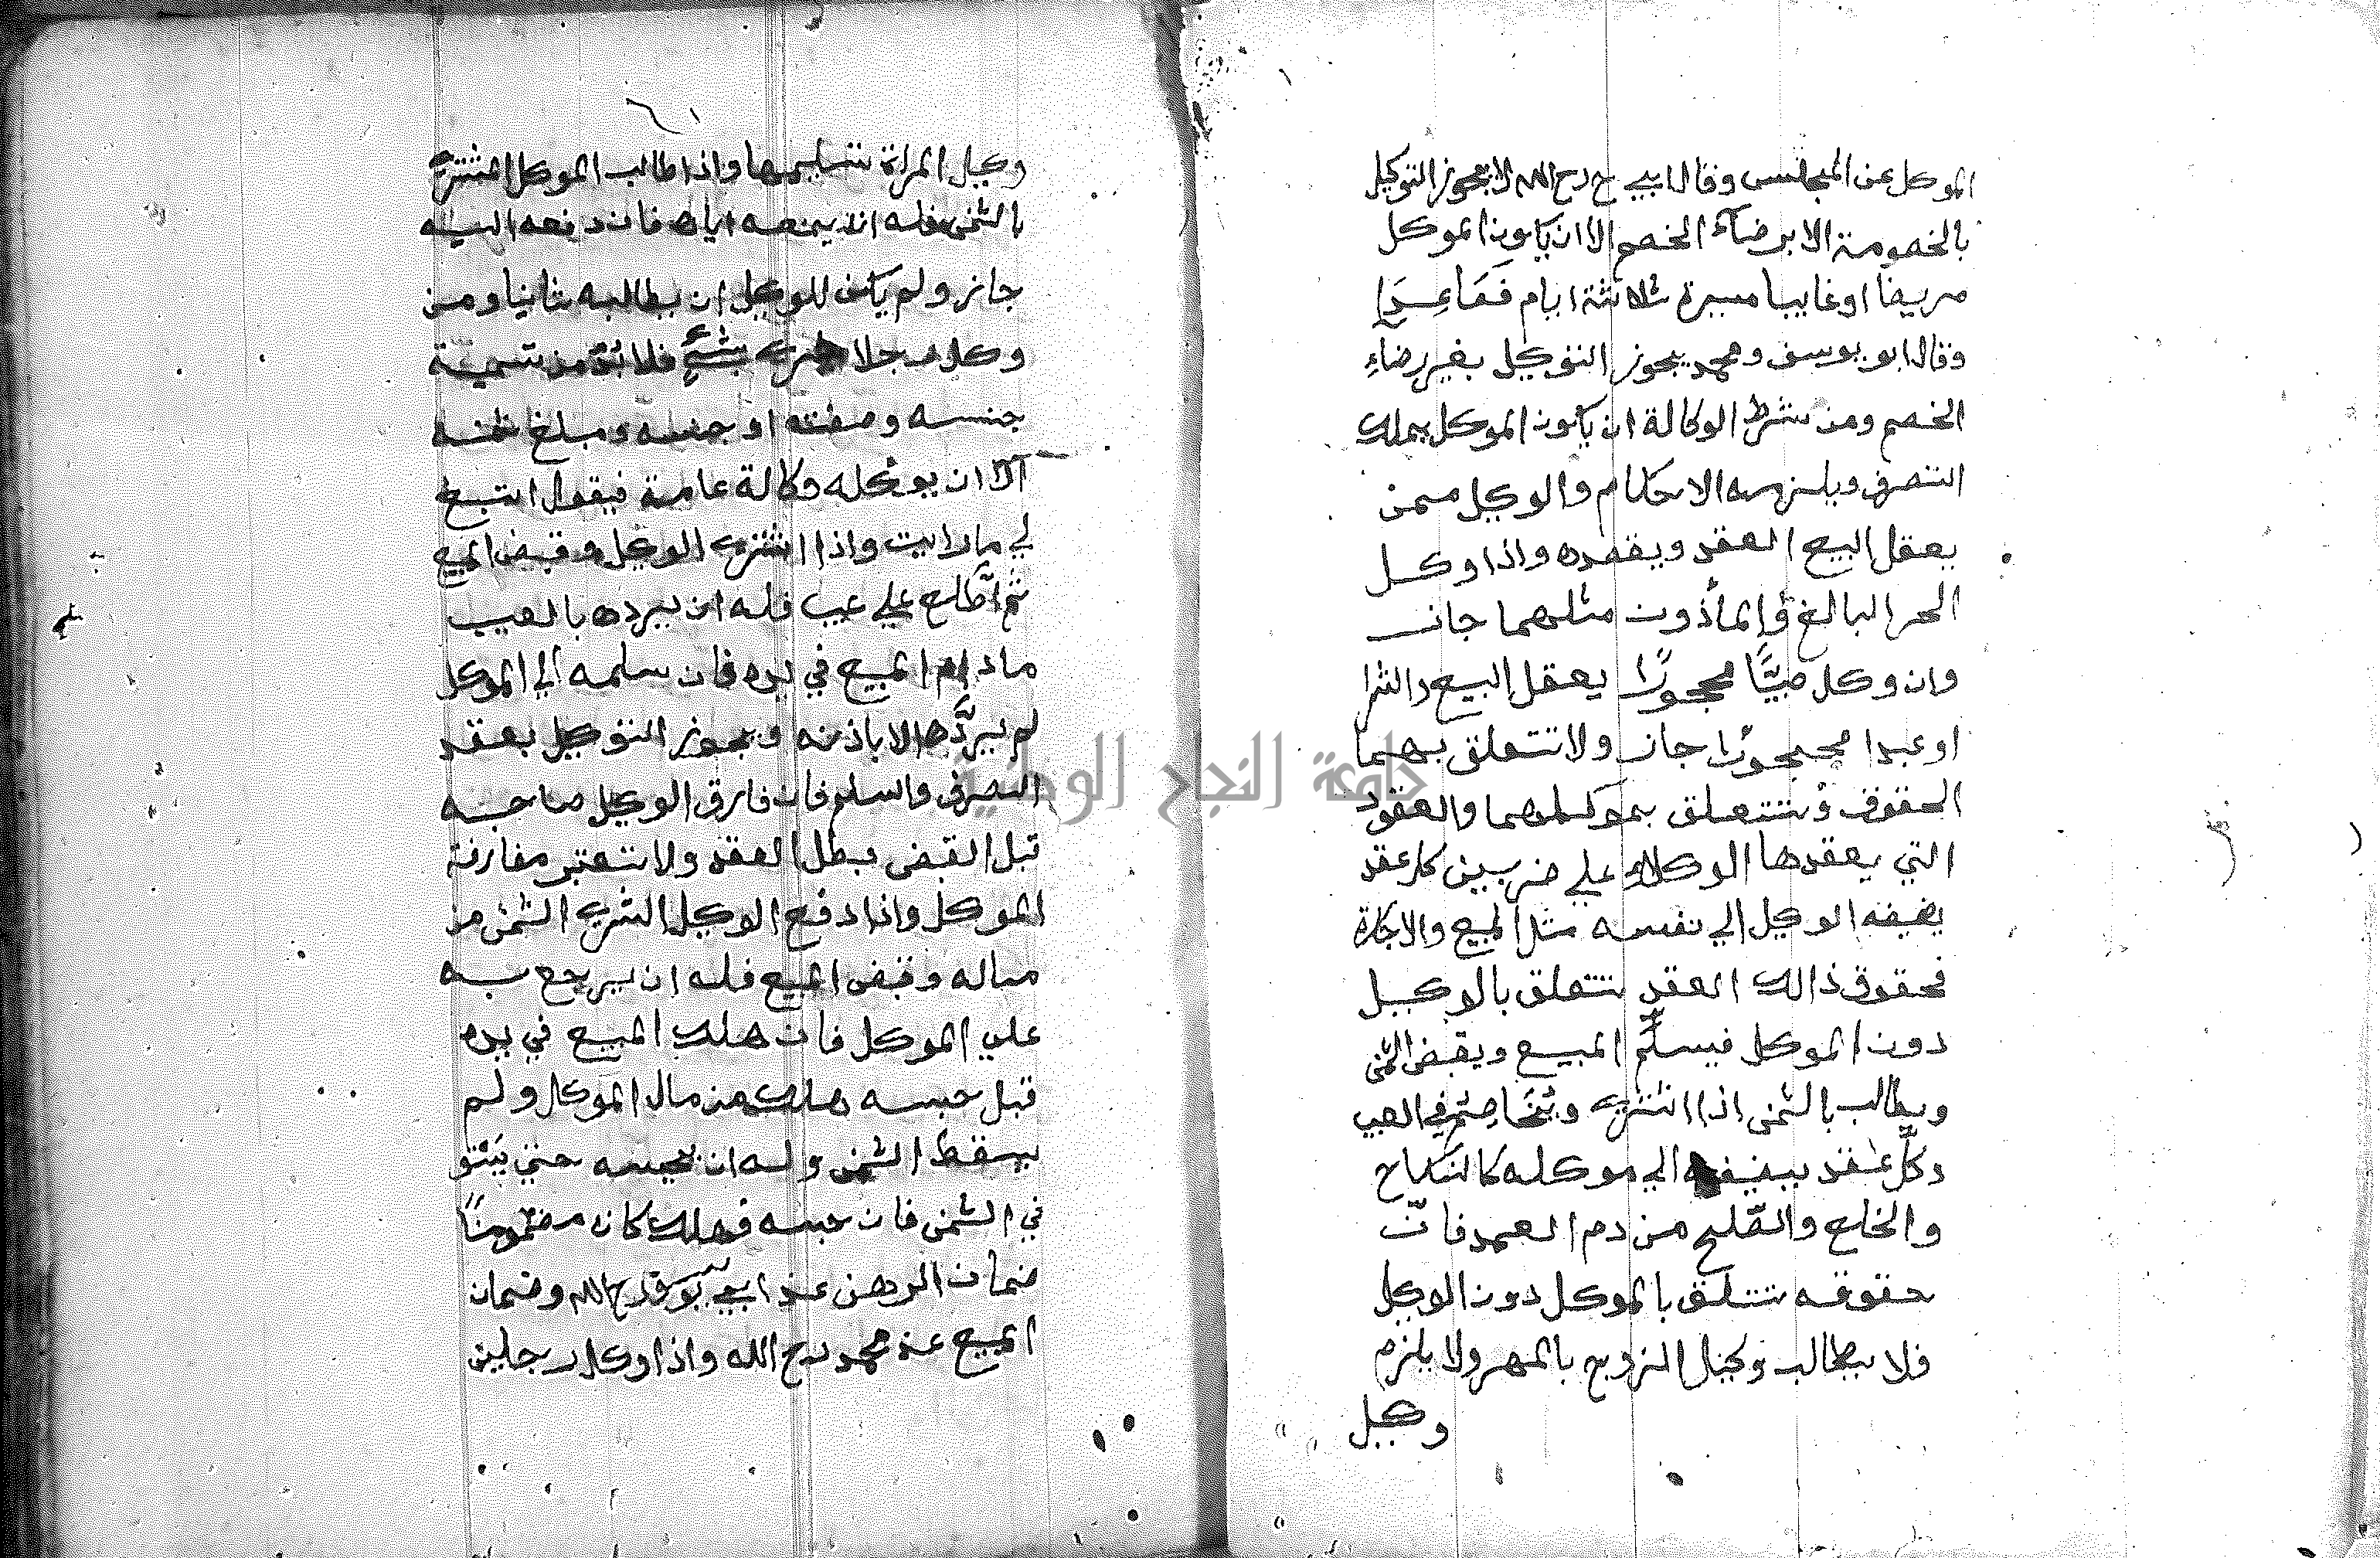 الموكل عن المجلس وقال ابي ح رح الله لا يجوز التوكيل
بالخصومة الا برضآء الخصم الا ان يكون الموكل
مريضا او غايبا مسيرة ثلاثة ايام فَصَاعِدَا
وقال ابو يوسف ومحمد يجوز التوكيل بغير رضاءِ
الخصم ومن شرط الوكالة ان يكون الموكل يملك
التصرف ويلزمه الاحكام والوكيل ممن
يعقل البيع العقد ويقصده واذا وكل
الحر البالغ والمأذون مثلهما جاز
وان وكل صبيًّا محجورًا يعقل البيع والشرا
او عبدا محجورًا جاز ولا تتعلق بهما
الحقوق وتتعلق بموكلهما والعقود
التي يعقدها الوكلاء علي ضربين كل عقد
يضيفه الوكيل الي نفسه مثل البيع والاجارة
فحقوق ذالك العقد تتعلق بالوكيل
دون الموكل فيسلّم المبيع ويقبض الثمن
ويطالب بالثمن اذا اشتري ويُخَاصِم في العيب
وكلّ عقد يضيفه الي موكله كالنكاح
والخلع والصّلح من دم العمد فانّ
حقوقه تتعلق بالموكل دون الوكيل
فلا يطالب وكيل الزويج بالمهر ولا يلزم
وكيل
وكيل المراة تسليمها واذا طالب الموكل المشتري
بالثمن فله ان يمنعه اياه فان دفعه اليه
جاز ولم يكن للوكيل ان يطالبه ثانيا ومن
وكل رجلا بشري شيئٍ فلا بدّ من تسمية
جنسه وصفته او جنسه ومبلغ ثمنه
الا ان يوكله وكالة عامة فيقول ابتع
لي ما رايت واذا اشتري الوكيل وقبض المبيع
ثم اطّلع علي عيب فله ان يرده بالعيب
ما دام المبيع في يده فان سلمه الي الموكل
لم يردَّه الا باذنه ويجوز التوكيل بعقد
الصرف والسلم فان فارق الوكيل صاحبه
قبل القبض بطل العقد ولا تعتبر مفارقة
الموكل واذا دفع الوكيل الشري الثمن من
ماله وقبض المبيع فله ان يرجع به
علي الموكل فان هلك المبيع في يده
قبل حبسه هلك من مال الموكل ولم
يسقط الثمن وله ان يحبسه حتي يَسْتو
في الثمن فان حبسه فهلك كان مضمونًا
ضمان الرهن عند ابي يوسف رح الله وضمان
المبيع عند محمد رح الله واذا وكل رجلين
جامعة النجاح الوطنية